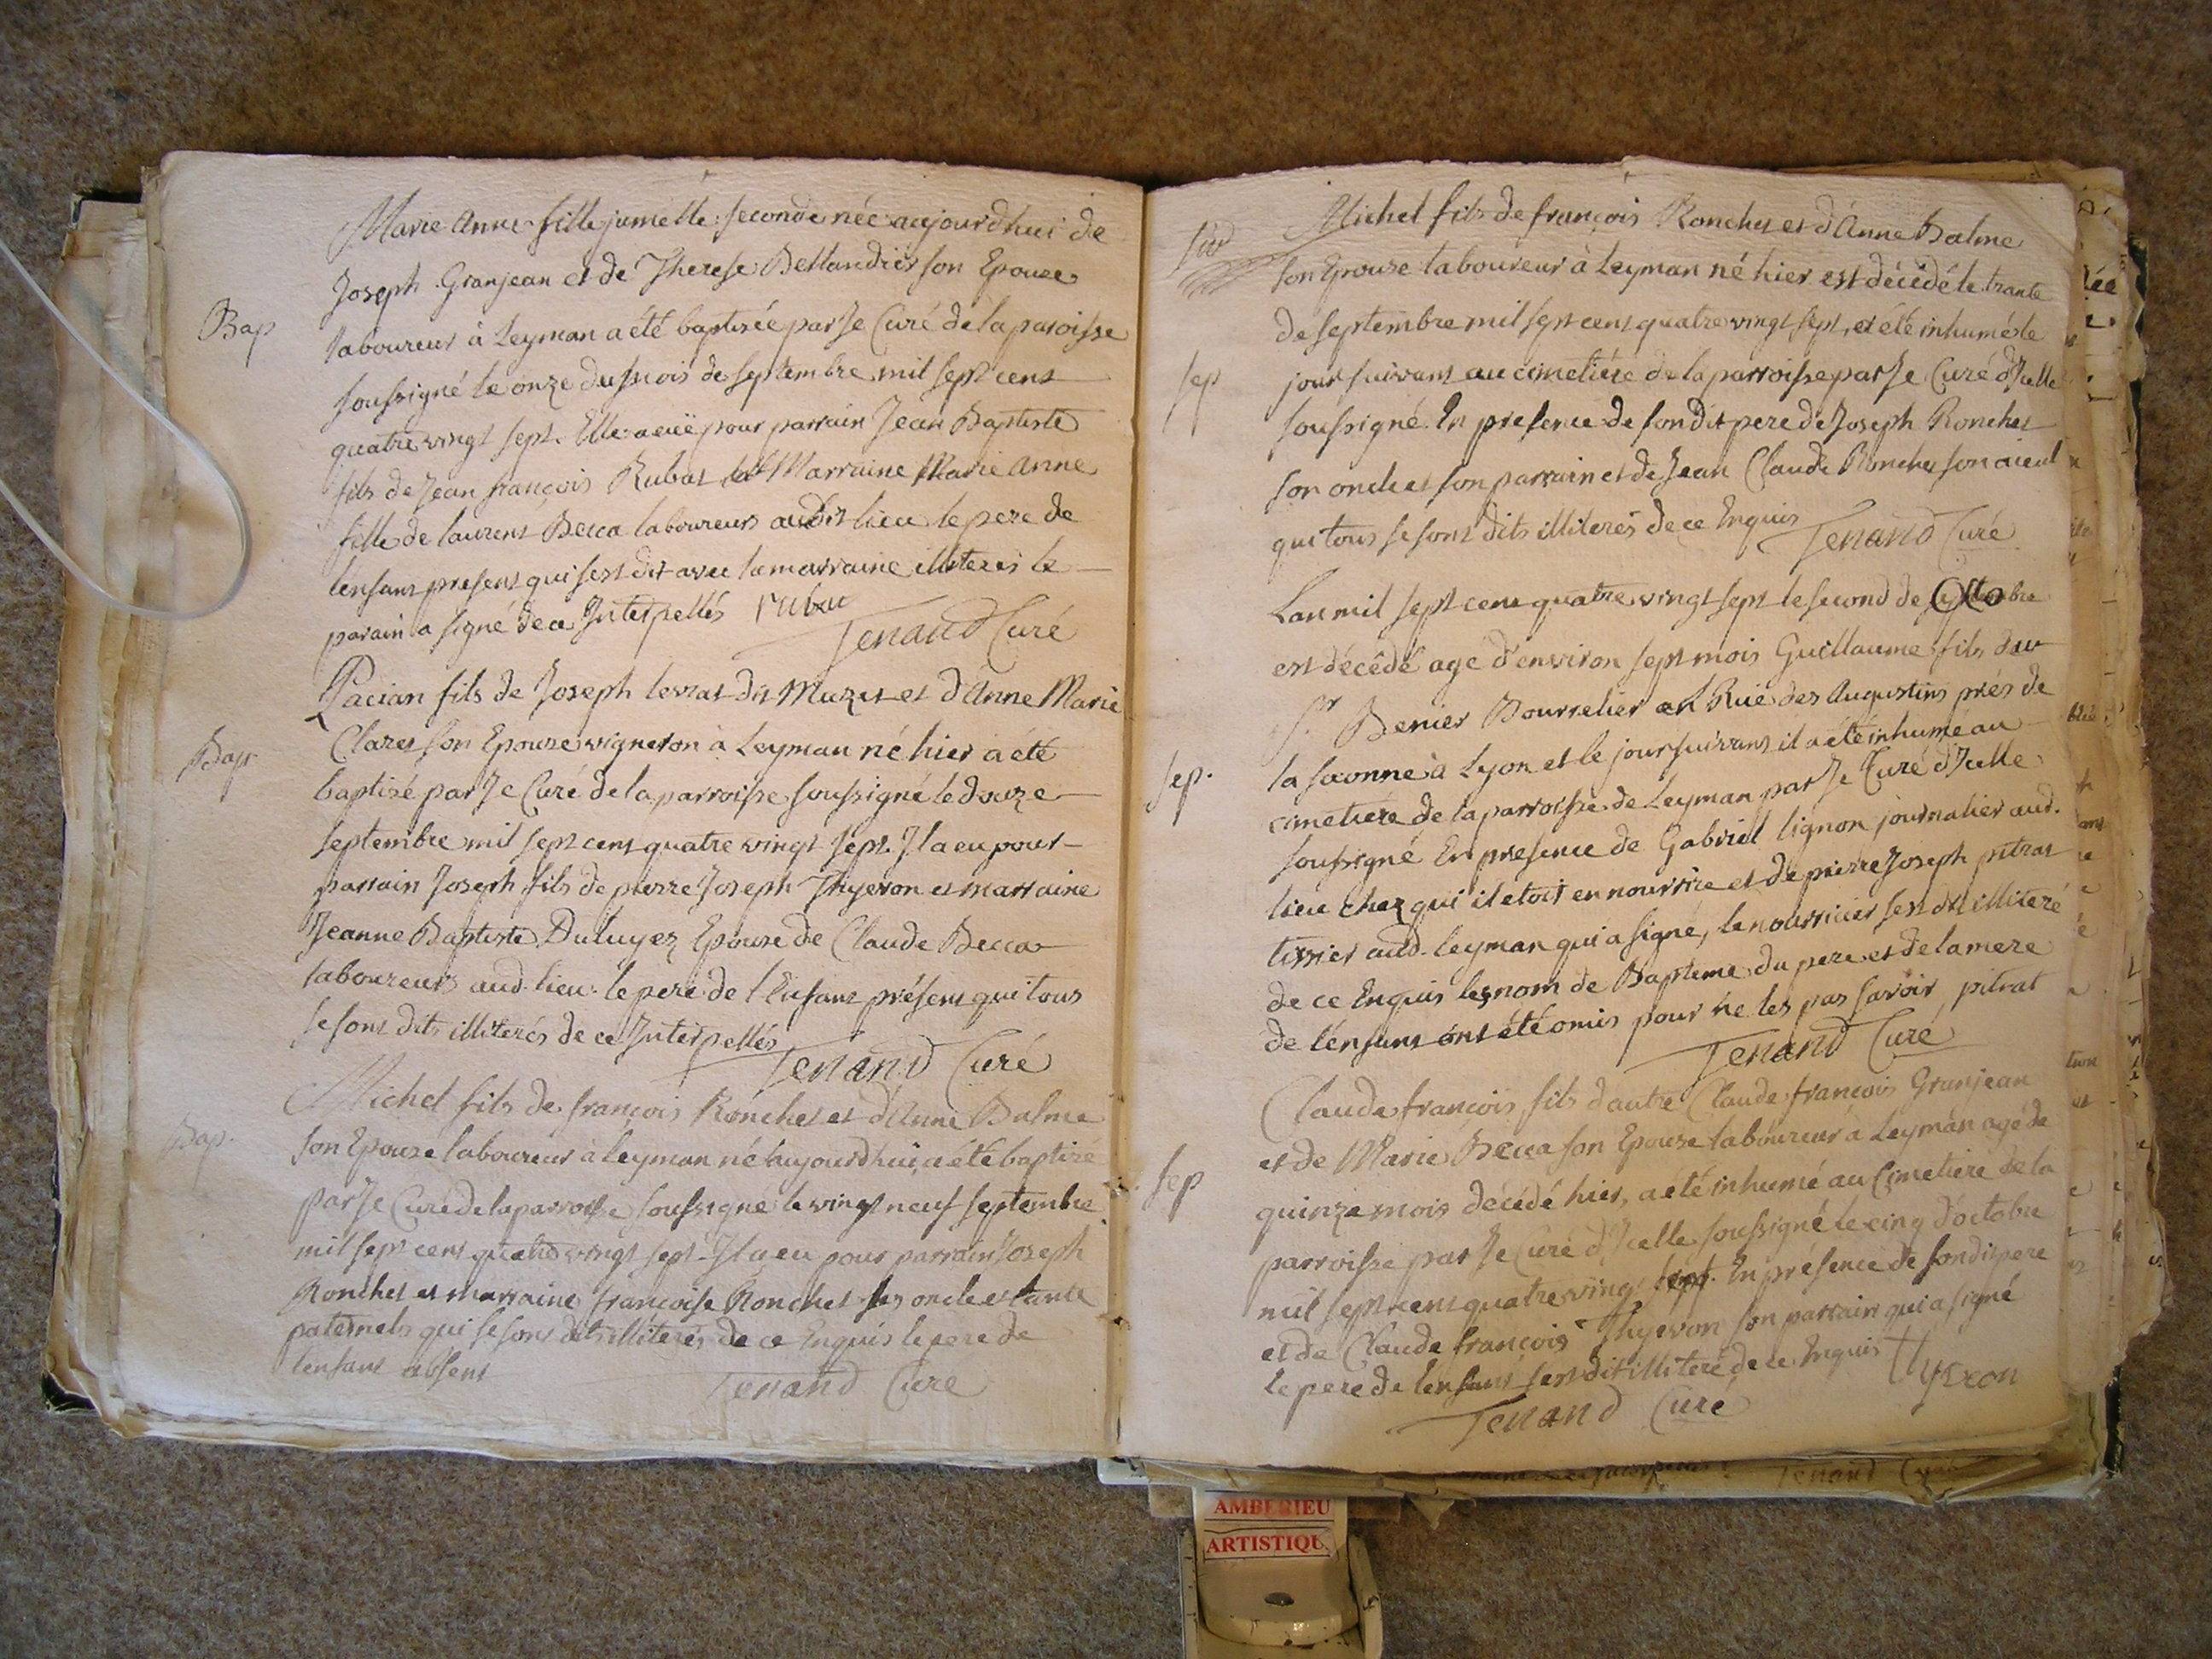 Marie Anne fille jumelle seconde née aujourdhui de
Joseph Granjean et de Therese Bellandier son Epouse
Bap
laboureur à Leyman a été baptisée par Je Curé de la paroisse
soussigné le onze du mois de septembre mil sept cens
quatre vingt sept. Elle a euë pour parrain Jean Baptiste
fils de Jean françois Rubat et Marraine Marie Anne
fille de laurent Becca laboureurs audit lieu le pere de
lenfant present qui sest dit avec la marraine illiteres le
parain a signé de ce Interpellés rubat
Tenand Curé
Pacian fils de Joseph levrat dit Muzet et d'Anne Marie
Bap
Claret son Epouse vigneron à Leyman né hier a été
baptisé par Je Curé de la parroisse soussigné le douze
septembre mil sept cent quatre vingt sept. Il a eu pour
parrain Joseph fils de pierre Joseph Thyevon et marraine
Jeanne Baptiste Dutuyez Epouse de Claude Becca
laboureurs aud. lieu. le pere de l'Enfant présent qui tous
se sont dits illiterés de ce Interpellés
Tenand Curé
Michel fils de françois Ronchet et d'Anne Balme
Bap.
son Epouse laboureur à Leyman né aujourdhui a été baptisé
par Je Curé de la parroisse soussigné le vingt neuf septembre
mil sept cent quatre vingt sept Il a eu pour parrain Joseph
Ronchet et marraine françoise Ronchet ses oncle et tante
paternels qui se sont dits illiterés de ce Enquis le pere de
lenfant absent
Tenand Curé
Michel fils de françois Ronchet et d'Anne Balme
son Epouse laboureur à Leyman né hier est décédé le trante
de septembre mil sept cent quatre vingt sept, et été inhumé le
sep
jour suivant au cimetière de la parroisse par Je Curé d'Icelle
soussigné. En presence de son dit pere de Joseph Ronchet
son oncle et son parrain et de Jean Claude Ronchet son aieul
qui tous se sont dits illiterés de ce Enquis
Tenand Curé
Lan mil sept cent quatre vingt sept le second de Octobre
est décédé agé d'environ sept mois Guillaume fils du
Sr Benier Bourrelier en Ruë des Augustins près de
sep.
la saonne à Lyon et le jour suivant il a été inhumé au
cimetière de la parroisse de Leyman par Je Curé d'Icelle
soussigné En presence de Gabriel lignon journalier aud.
lieu chez qui il etoit en nourrice et de pierre Joseph pitrat
tissier aud. leyman qui a signé, le nourricier sest dit illiteré
de ce Enquis les nom de Bapteme du pere et de la mere
de l'enfant ont été omis pour ne les pas savoir pitrat
Tenand Curé
Claude françois fils d'autre Claude françois Granjean
et de Marie Becca son Epouse laboureur à Leyman agé de
sep
quinze mois décédé hier, a été inhumé au Cimetiere de la
parroisse par Je Curé d'Icelle soussigné le cinq d'octobre
mil sept cent quatre vingt sept. En présence de son dit pere
et de Claude françois Thyevon son parrain qui a signé
le pere de lenfant sest dit illiteré de ce Enquis Thyvon
Tenand Curé
AMBERIEU
ARTISTIQU